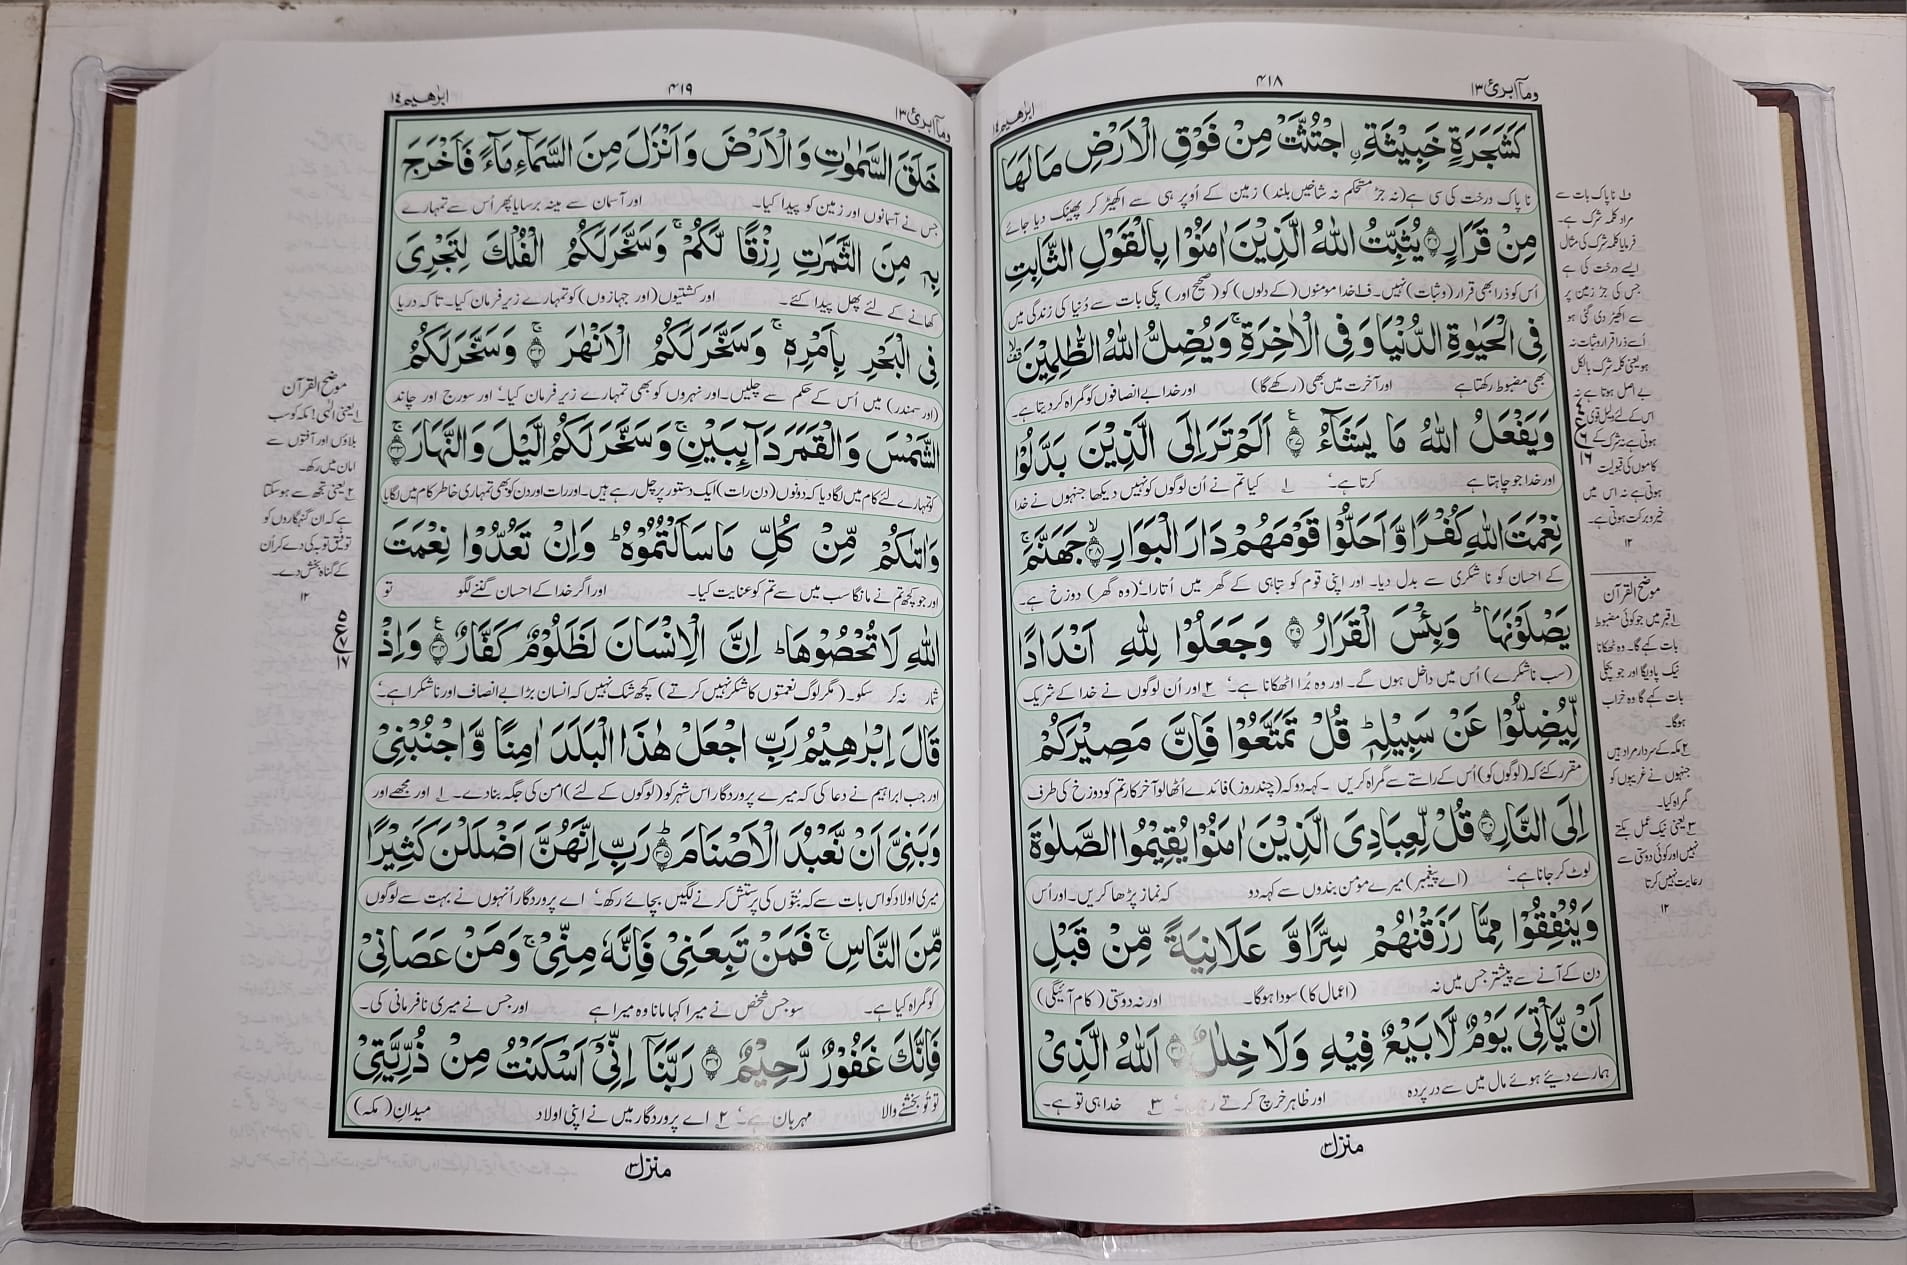 وما ابرئ ١٣
٤١٨
ابرٰهيم ١٤
كَشَجَرَةٍ خَبِيْثَةِ ِۨاجْتُثَّتْ مِنْ فَوْقِ الْاَرْضِ مَا لَهَا
ناپاک درخت کی سی ہے (نہ جڑ مستحکم نہ شاخیں بلند) زمین کے اُوپر ہی سے اکھیڑ کر پھینک دیا جائے
مِنْ قَرَارٍ ﴿٢٦﴾ يُثَبِّتُ اللّٰهُ الَّذِيْنَ اٰمَنُوْا بِالْقَوْلِ الثَّابِتِ
اُس کو ذرا بھی قرار (وثبات) نہیں۔ ف۱ خدا مومنوں (کے دلوں) کو (صحیح اور) پکی بات سے دُنیا کی زندگی میں
فِي الْحَيٰوةِ الدُّنْيَا وَفِي الْاٰخِرَةِ ۚ وَيُضِلُّ اللّٰهُ الظّٰلِمِيْنَ
بھی مضبوط رکھتا ہے اور آخرت میں بھی (رکھے گا) اور خدا بے انصافوں کو گمراہ کر دیتا ہے۔
وَيَفْعَلُ اللّٰهُ مَا يَشَآءُ ﴿٢٧﴾ اَلَمْ تَرَ اِلَى الَّذِيْنَ بَدَّلُوْا
اور خدا جو چاہتا ہے کرتا ہے۔ ۱ کیا تم نے اُن لوگوں کو نہیں دیکھا جنہوں نے خدا
نِعْمَتَ اللّٰهِ كُفْرًا وَّاَحَلُّوْا قَوْمَهُمْ دَارَ الْبَوَارِ ﴿٢٨﴾ جَهَنَّمَ ۚ
کے احسان کو ناشکری سے بدل دیا۔ اور اپنی قوم کو تباہی کے گھر میں اُتارا۔ (وہ گھر) دوزخ ہے۔
يَصْلَوْنَهَا ؕ وَبِئْسَ الْقَرَارُ ﴿٢٩﴾ وَجَعَلُوْا لِلّٰهِ اَنْدَادًا
(سب ناشکرے) اُس میں داخل ہوں گے۔ اور وہ بُرا ٹھکانا ہے۔ ۲ اور اُن لوگوں نے خدا کے شریک
لِّيُضِلُّوْا عَنْ سَبِيْلِهٖ ؕ قُلْ تَمَتَّعُوْا فَاِنَّ مَصِيْرَكُمْ
مقرر کئے کہ (لوگوں کو) اُس کے راستے سے گمراہ کریں۔ کہہ دو کہ (چند روز) فائدے اُٹھا لو آخر کار تم کو دوزخ کی طرف
اِلَى النَّارِ ﴿٣٠﴾ قُلْ لِّعِبَادِيَ الَّذِيْنَ اٰمَنُوْا يُقِيْمُوا الصَّلٰوةَ
لوٹ کر جانا ہے۔ (اے پیغمبر) میرے مومن بندوں سے کہہ دو کہ نماز پڑھا کریں۔ اور اُس
وَيُنْفِقُوْا مِمَّا رَزَقْنٰهُمْ سِرًّا وَّعَلَانِيَةً مِّنْ قَبْلِ
دن کے آنے سے پیشتر جس میں نہ (اعمال کا) سودا ہوگا۔ اور نہ دوستی (کام آئیگی)
اَنْ يَّاْتِيَ يَوْمٌ لَّا بَيْعٌ فِيْهِ وَلَا خِلٰلٌ ﴿٣١﴾ اَللّٰهُ الَّذِيْ
ہمارے دیئے ہوئے مال میں سے درپردہ اور ظاہر خرچ کرتے رہیں۔ ۳ خدا ہی تو ہے۔
منزل ٣
ف۱ ناپاک بات سے
مراد کلمہ شرک ہے۔
فرمایا کلمہ شرک کی مثال
ایسے درخت کی ہے
جس کی جڑ زمین پر
سے اکھیڑ دی گئی ہو
اُسے ذرا قرار وثبات نہ
ہو یعنی کلمہ شرک بالکل
بے اصل ہوتا ہے نہ
اس کے لئے دلیل قوی
ہوتی ہے نہ شرک کے
کاموں کی قبولیت
ہوتی ہے نہ اس میں
خیر و برکت ہوتی ہے۔
١٢
ع ٦ ١٦
موضح القرآن
۱ قبر میں جو کوئی مضبوط
بات کہے گا۔ وہ ٹھکانا
نیک پاویگا اور جو بچلی
بات کہے گا وہ خراب
ہوگا۔
۲ مکہ کے سردار مراد ہیں
جنہوں نے غریبوں کو
گمراہ کیا۔
۳ یعنی نیک عمل بکتے
نہیں اور کوئی دوستی سے
رعایت نہیں کرتا
١٢
وما ابرئ ١٣
٤١٩
ابرٰهيم ١٤
خَلَقَ السَّمٰوٰتِ وَالْاَرْضَ وَاَنْزَلَ مِنَ السَّمَآءِ مَآءً فَاَخْرَجَ
جس نے آسمانوں اور زمین کو پیدا کیا۔ اور آسمان سے مینہ برسایا پھر اُس سے تمہارے
بِهٖ مِنَ الثَّمَرٰتِ رِزْقًا لَّكُمْ ۚ وَسَخَّرَ لَكُمُ الْفُلْكَ لِتَجْرِيَ
کھانے کے لئے پھل پیدا کئے۔ اور کشتیوں (اور جہازوں) کو تمہارے زیر فرمان کیا۔ تاکہ دریا
فِي الْبَحْرِ بِاَمْرِهٖ ۚ وَسَخَّرَ لَكُمُ الْاَنْهٰرَ ﴿٣٢﴾ ۚ وَسَخَّرَ لَكُمُ
(اور سمندر) میں اُس کے حکم سے چلیں۔ اور نہروں کو بھی تمہارے زیر فرمان کیا۔ اور سورج اور چاند
الشَّمْسَ وَالْقَمَرَ دَآئِبَيْنِ ۚ وَسَخَّرَ لَكُمُ الَّيْلَ وَالنَّهَارَ ﴿٣٣﴾ ۚ
کو تمہارے لئے کام میں لگا دیا کہ دونوں (دن رات) ایک دستور پر چل رہے ہیں۔ اور رات اور دن کو بھی تمہاری خاطر کام میں لگایا
وَاٰتٰىكُمْ مِّنْ كُلِّ مَا سَاَلْتُمُوْهُ ؕ وَاِنْ تَعُدُّوْا نِعْمَتَ
اور جو کچھ تم نے مانگا سب میں سے تم کو عنایت کیا۔ اور اگر خدا کے احسان گننے لگو تو
اللّٰهِ لَا تُحْصُوْهَا ؕ اِنَّ الْاِنْسَانَ لَظَلُوْمٌ كَفَّارٌ ﴿٣٤﴾ وَاِذْ
شمار نہ کر سکو۔ (مگر لوگ نعمتوں کا شکر نہیں کرتے) کچھ شک نہیں کہ انسان بڑا بے انصاف اور ناشکرا ہے۔
قَالَ اِبْرٰهِيْمُ رَبِّ اجْعَلْ هٰذَا الْبَلَدَ اٰمِنًا وَّاجْنُبْنِيْ
اور جب ابراہیم نے دعا کی کہ میرے پروردگار اس شہر کو (لوگوں کے لئے) امن کی جگہ بنا دے۔ ۱ اور مجھے اور
وَبَنِيَّ اَنْ نَّعْبُدَ الْاَصْنَامَ ﴿٣٥﴾ ؕ رَبِّ اِنَّهُنَّ اَضْلَلْنَ كَثِيْرًا
میری اولاد کو اس بات سے کہ بتوں کی پرستش کرنے لگیں بچائے رکھ۔ اے پروردگار اُنہوں نے بہت سے لوگوں
مِّنَ النَّاسِ ۚ فَمَنْ تَبِعَنِيْ فَاِنَّهٗ مِنِّيْ ۚ وَمَنْ عَصَانِيْ
کو گمراہ کیا ہے۔ سو جس شخص نے میرا کہا مانا وہ میرا ہے اور جس نے میری نافرمانی کی۔
فَاِنَّكَ غَفُوْرٌ رَّحِيْمٌ ﴿٣٦﴾ رَبَّنَآ اِنِّيْٓ اَسْكَنْتُ مِنْ ذُرِّيَّتِيْ
تو تُو بخشنے والا مہربان ہے۔ ۲ اے پروردگار میں نے اپنی اولاد میدانِ (مکہ)
منزل ٣
موضح القرآن
۱ یعنی الٰہی! مکہ کو سب
بلاؤں اور آفتوں سے
امان میں رکھ۔
۲ یعنی تجھ سے ہو سکتا
ہے کہ ان گنہگاروں کو
توفیق توبہ کی دے کر اُن
کے گناہ بخش دے۔
١٢
ع ٧ ١٧